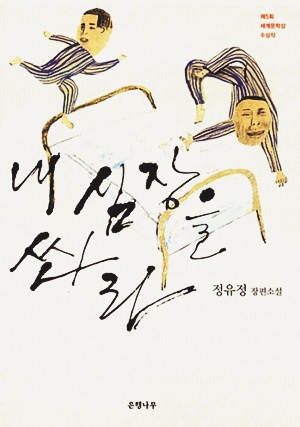 제5회
세계문학상
수상작
내 심장을
쏴라
정유정 장편소설
은행나무